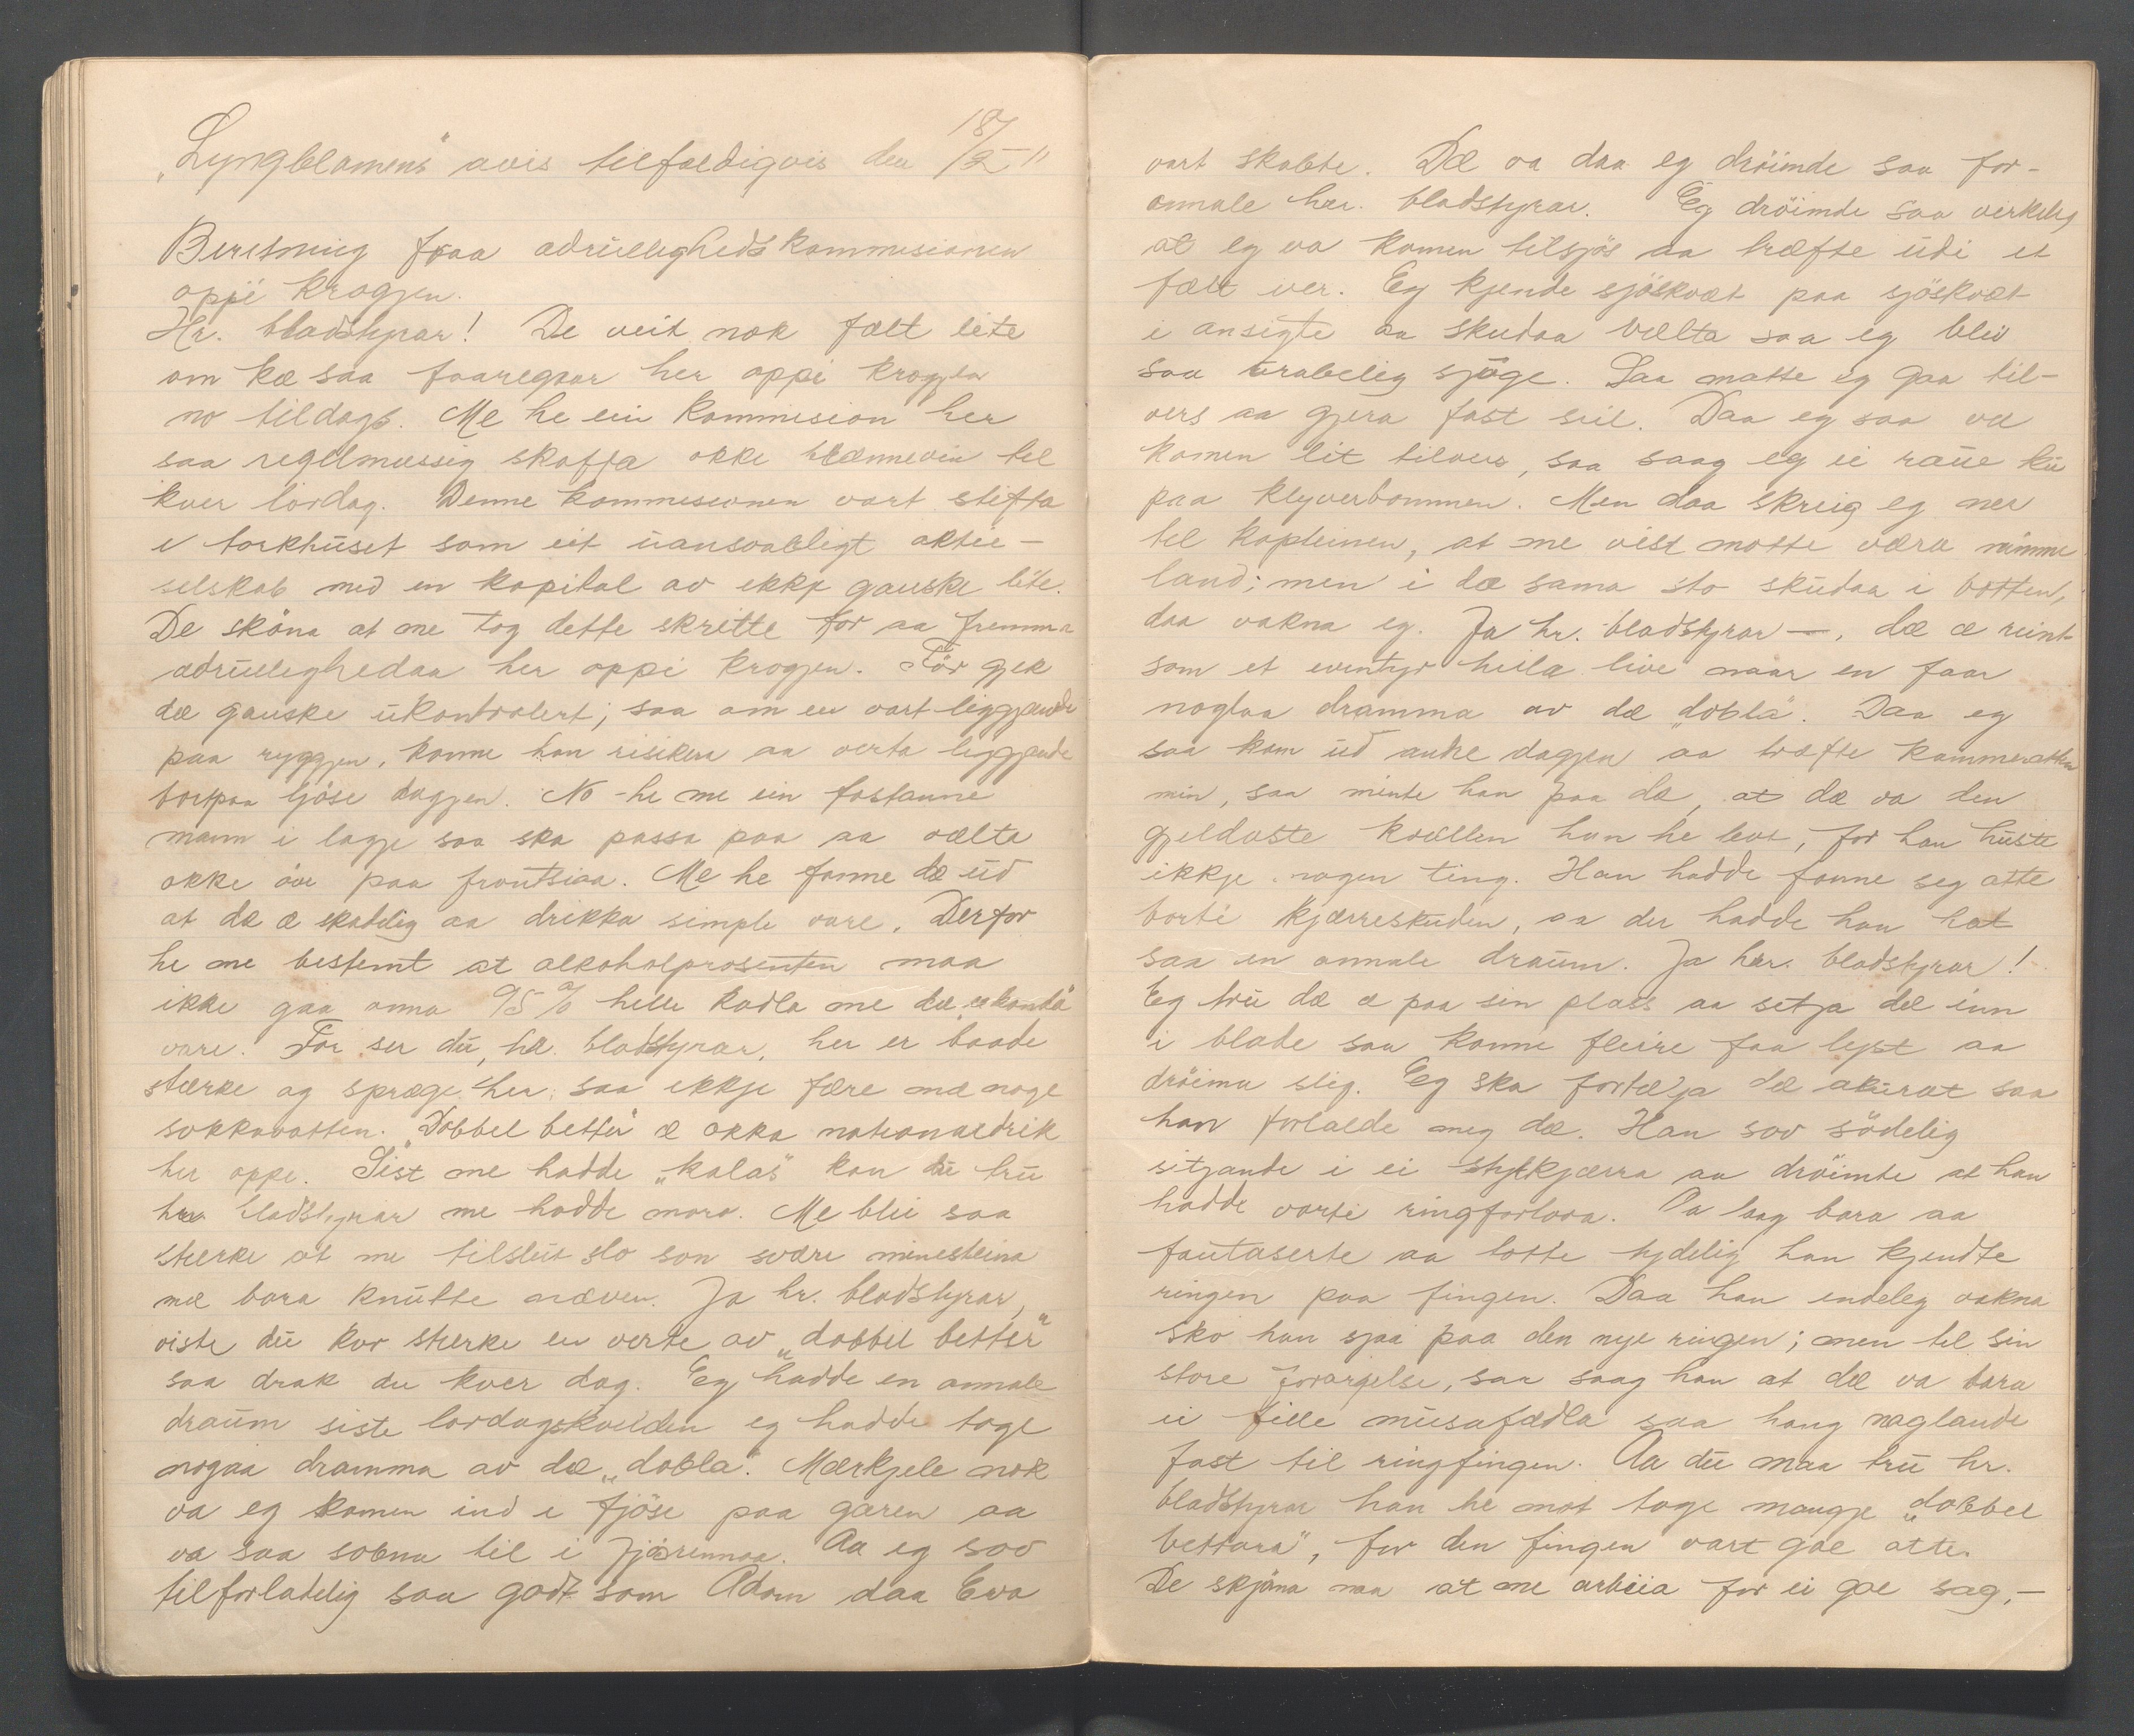 „Lyngblomens" avis tilfældigvis den 18/2-11
Beretning fraa ædruelighedskommisionen
oppi krogjen.
Hr. bladstyrar! De veit nok fælt lite
om kæ saa faaregaar her oppi krogjen
no tildags. Me he ein kommision her
saa regelmessig skaffa okke brænnevin til
kver lördag. Denne kommisionen vart stifta
i torkhuset som eit uansvabligt aktie-
selskab med en kapital av ikkje ganske lite.
De sköna at me tog dette skritte for aa fremma
ædrueligheda her oppi krogjen. För gjek
dæ ganske ukontrolert; saa om en vart liggjande
paa ryggjen, konne han risikera aa verta liggjande
bortpaa ljöse dagjen. No he me ein fastanne
mann i lagje saa ska passa paa aa vælta
okke öve paa frontsiaa. Me he fonne dæ ud
at dæ æ skadelig aa drikka simple vare. Derfor
he me bestemt at alkoholprosenten maa
ikke gaa onna 95% helle kadla me dæ „skonda"
vare. For ser du, hr. bladstyrar, her er baade
stærke og spræge her, saa ikkje fære mæ noge
sokkavatten. „Dobbel better" æ okka nationaldrik
her oppe. Sist me hadde „kalas" kan du tru
hr. bladstyrar me hadde mora. Me blei saa
stærke at me tilslut slo son svære minesteina
mæ bara knutte næven. Ja hr. bladstyrar,
viste du kor stærke en verte av „dobbel better"
saa drak du kver dag. Eg hadde en onnale
draum siste lordagskvelden eg hadde toge
nogaa dramma av dæ „dobla". Mærkjele nok
va eg komen ind i fjöse paa garen aa
va saa sobna til i fjösrennaa. Aa eg sov
tilforladelig saa godt som Adam daa Eva
vart skabte. Dæ va daa eg dröimde saa for-
onnale her. bladstyrar. Eg dröimde saa verkeleg
at eg va komen tilsjös aa træfte udi et
fælt ver. Eg kjende sjöskvæt paa sjöskvæt
i ansigte aa skudaa vælta saa eg blei
saa urabelig sjöge. Saa matte eg gaa til-
vers aa gjera fast seil. Daa eg saa va
komen lit tilvers, saa saag eg ei raue ku
paa klyverbommen. Men daa skreig eg ner
til kapteinen, at me vist motte være nimme
land; men i dæ sama sto skudaa i botten,
daa vakna eg. Ja hr. bladstyrar —, dæ æ reint
som et eventyr heila live naar en faar
noglaa dramma av dæ „dobla". Daa eg
saa kom ud andre dagjen aa træfte kammeraten
min, saa minte han paa dæ, at dæ va den
gjeldaste kvællen han he levt, for han huste
ikkje nogen ting. Han hadde fonne seg atte
borti kjærreskuden, aa der hadde han hat
saa en onnale draum. Ja her. bladstyrar!
Eg tru dæ æ paa sin plass aa setja dæ inn
i blade saa konne fleire faa lyst aa
dröima slig. Eg ska fortælja dæ akurat saa
han fortalde meg dæ. Han sov södelig
sitjande i ei stykkjærra aa dröimte at han
hadde vorti ringforlova. Aa laag bara aa
fantaserte aa totte tydelig han kjendte
ringen paa fingen. Daa han endeleg vakna
sko han sjaa paa den nye ringen; men til sin
store forargelse, saa saag han at dæ va bara
ei fille musafædla saa hang naglande
fast til ringfingen. Aa du maa tru hr.
bladstyrar han he mot toge mangje „dobbel
bettara", for den fingen vart goe atte.
De skjöna naa at me arbeia for ei goe sag, —